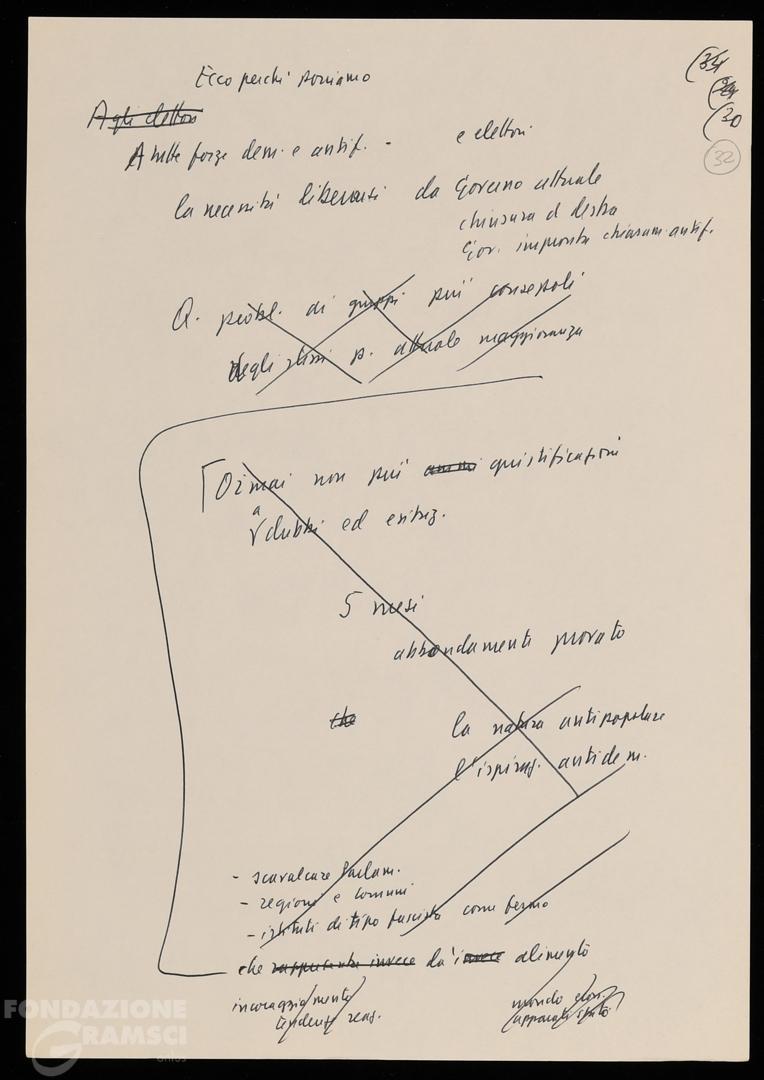 Ecco perché poniamo
(34
(24
(30
32
Agli elettori
A tutte forze dem. e antif. - e elettori
la necessità liberarsi da Governo attuale
chiusura d destra
Gov. impronta chiaram. antif.
Q. probl. di gruppi più consapevoli
degli stessi p. attuale maggioranza
Ormai non più giustificazioni
a
dubbi ed esitaz.
5 mesi
abbondamente provato
che
la natura antipopolare
l'ispiraz. antidem.
- scavalcare Parlam.
- regioni e comuni
- istituti di tipo fascista come fermo
che rappresenta invece dà invece alimento
incoraggiamento mondo
tendenze reaz. apparati stato
FONDAZIONE
GRAMSCI
onlus